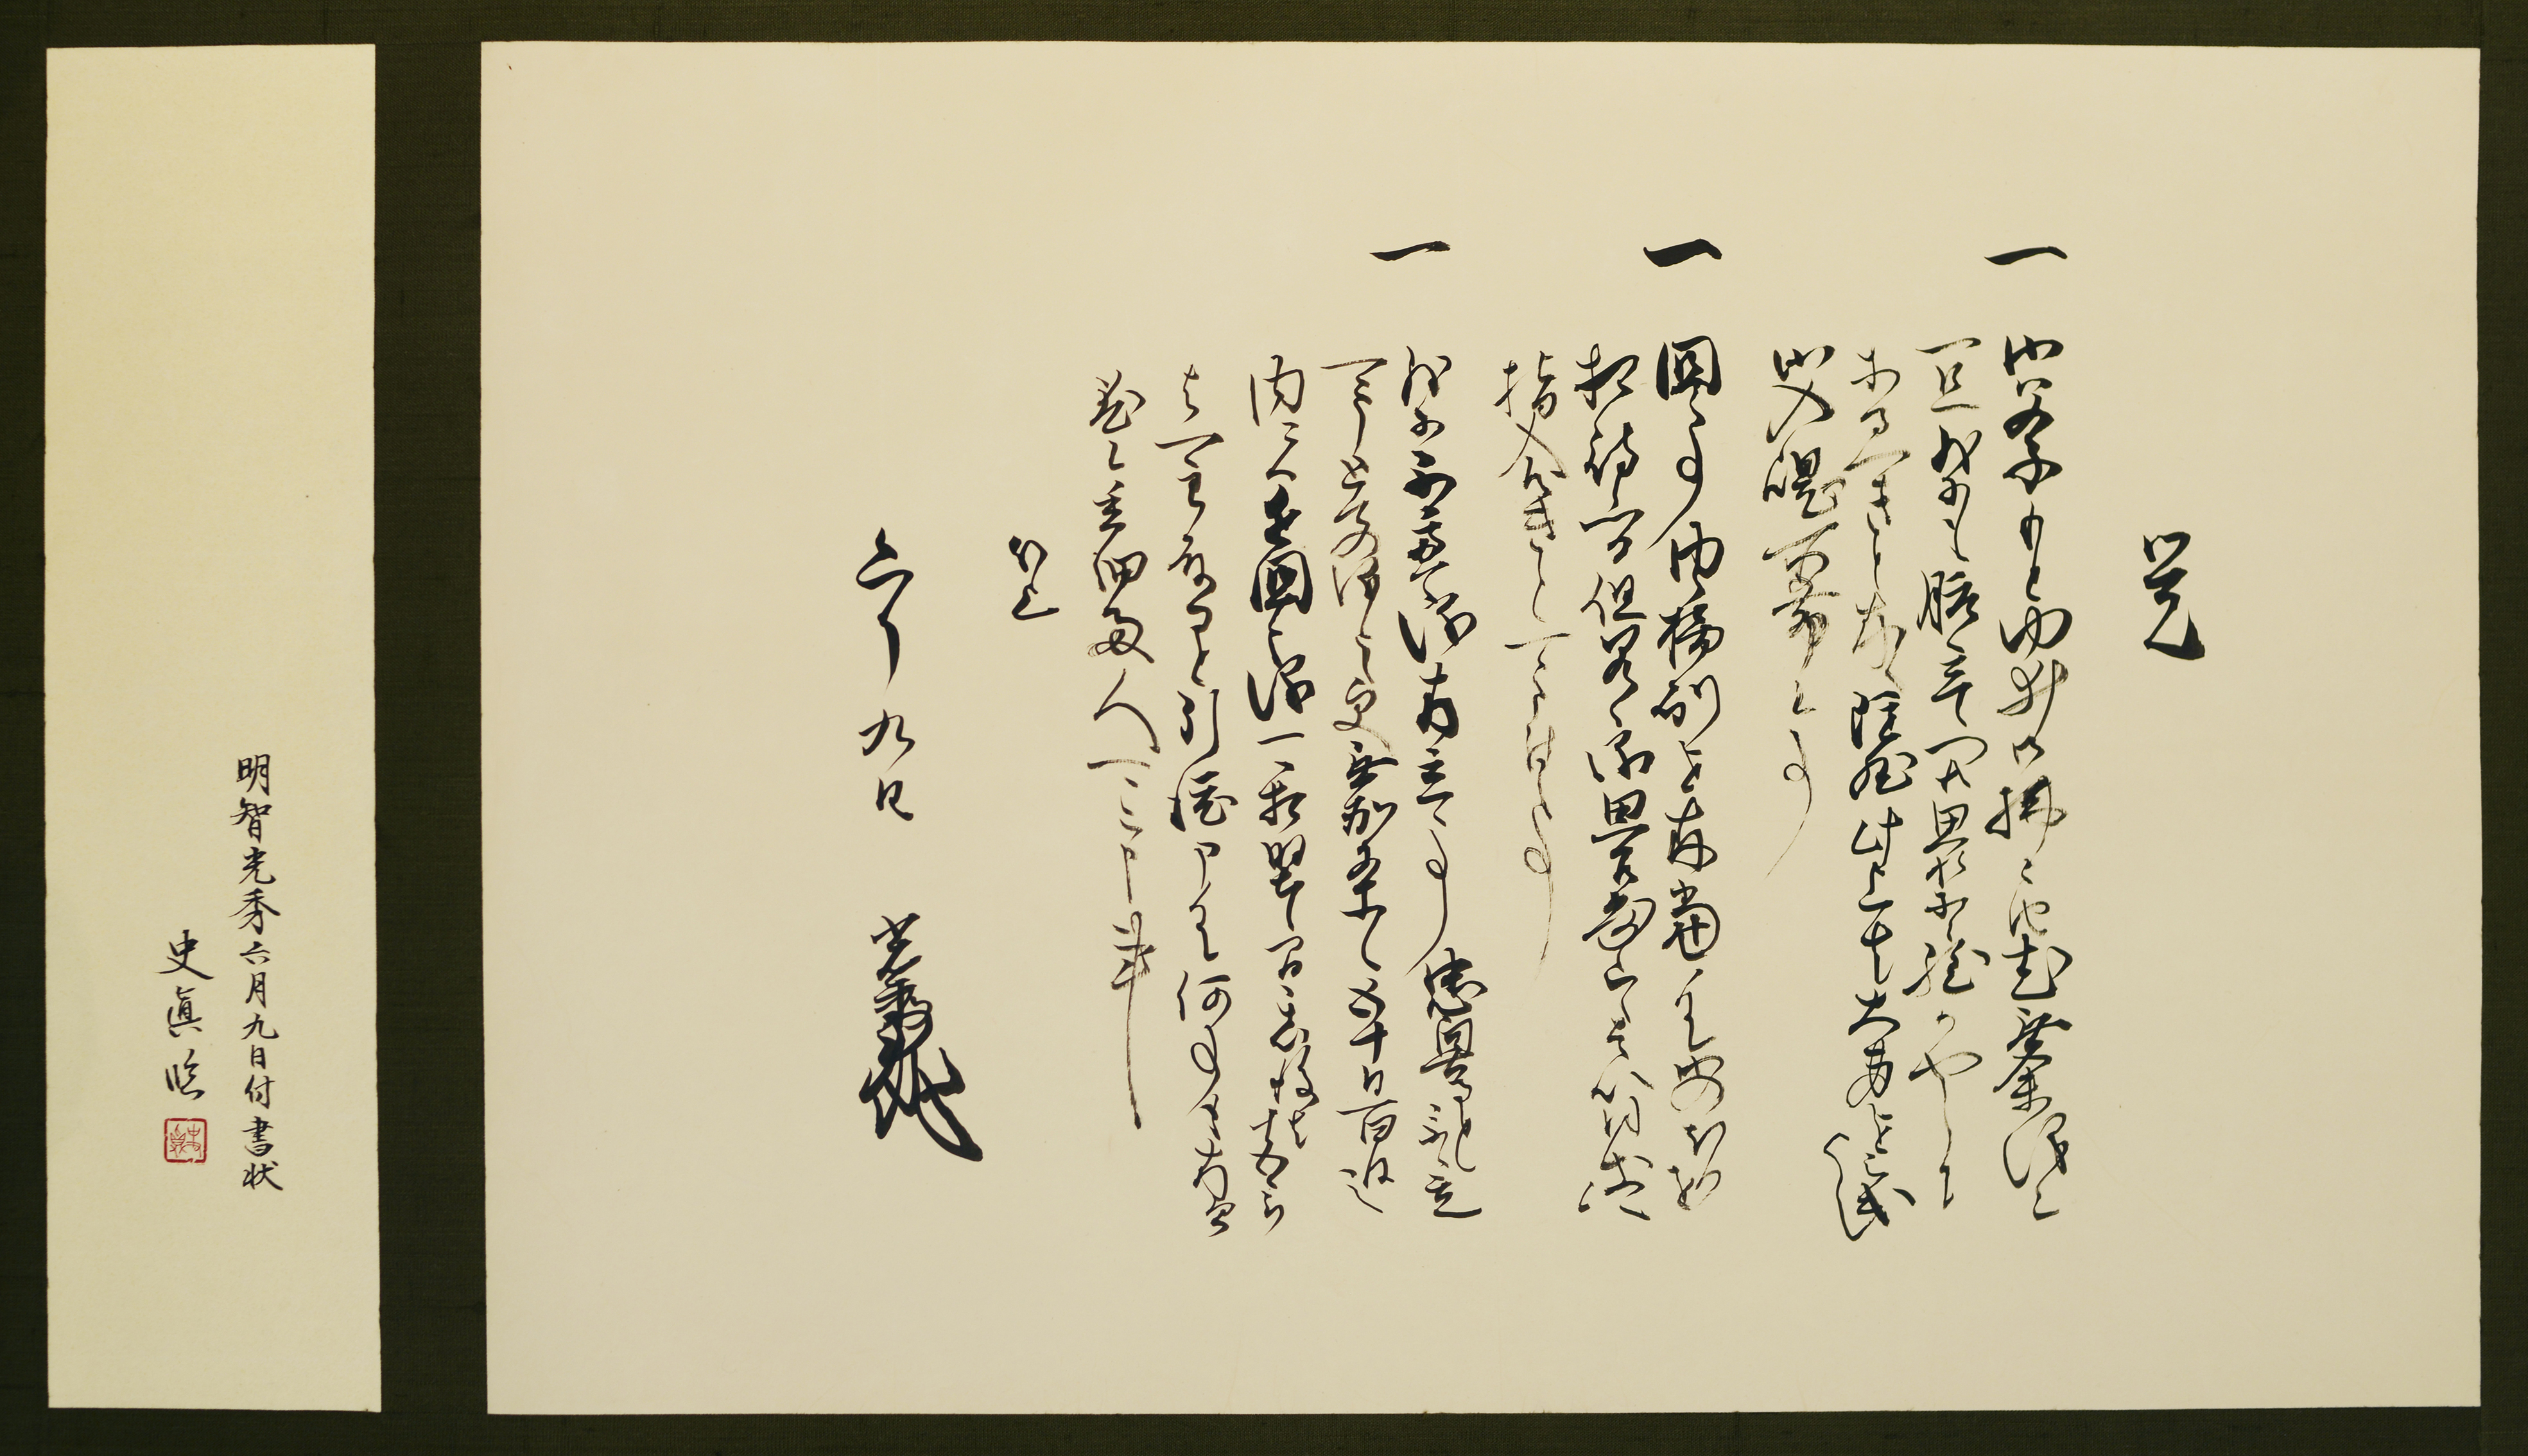 覚
一 御父子もとゆゐ御払候由尤無余儀候
一旦我等も腹立候へ共思案候程かやうニ
あるへきと存候雖然此上者大身を被出候て
御入魂所希候事
一 国之事内々摂州を存当候て御のほりを
相待候つる但若之儀思召寄候ハヽ是以同前ニ候
指合きと可申付候事
一 我等不慮之儀存立候事忠興なと取立
可申とての儀ニ候更無別条候五十日百日之
内ニハ近国之儀可相堅候間其以後者十五郎
与一郎殿なと引渡申候て何事も存間
敷候委細両人可被申候事
以上
六月九日 光秀
明智光秀六月九日付書状
史眞臨